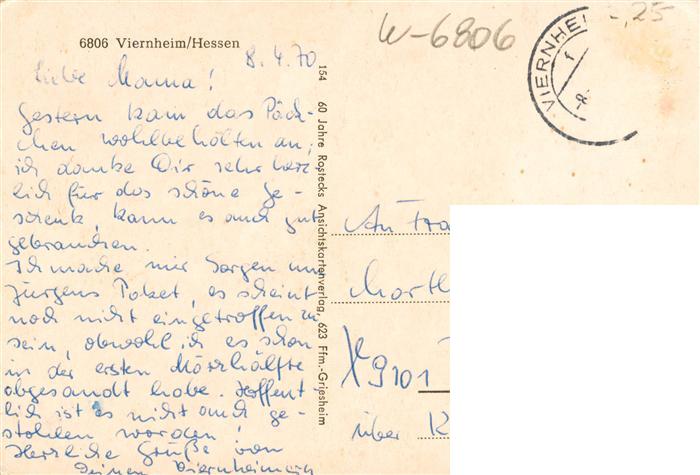 6806 Viernheim/Hessen
W-6806
-,25
VIERNHEI
8.4.70
Liebe Mama!
Gestern kam das Päck-
chen wohlbehalten an;
ich danke Dir sehr herz
lich für das schöne Ge-
schenk, kann es auch gut
gebrauchen.
Ich mache mir Sorgen um
Jürgens Paket, es scheint
noch nicht eingetroffen zu
sein, obwohl ich es schon
in der ersten Märzhälfte
abgesandt habe. Hoffent-
lich ist es nicht auch ge-
stohlen worden!
Herzliche Grüße von
Deinen Viernheimern
154 60 Jahre Rostecks Ansichtskartenverlag, 623 Ffm.-Griesheim
An Fra
Marth
X9101
über K